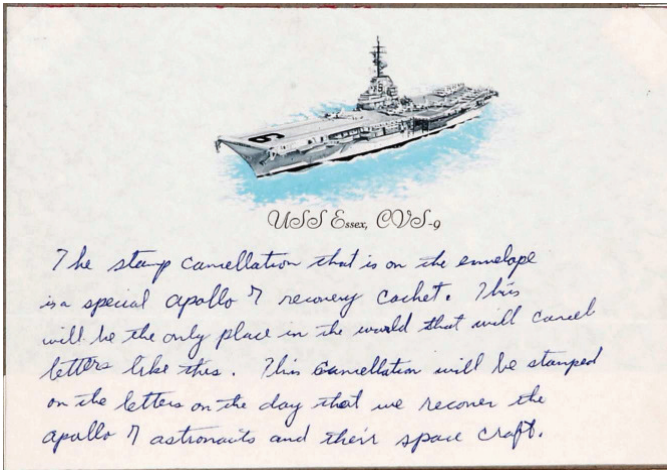 9
USS Essex, CVS-9
The stamp cancellation that is on the envelope
is a special apollo 7 recovery cachet. This
will be the only place in the world that will cancel
letters like this. This cancellation will be stamped
on the letters on the day that we recover the
apollo 7 astronauts and their space craft.